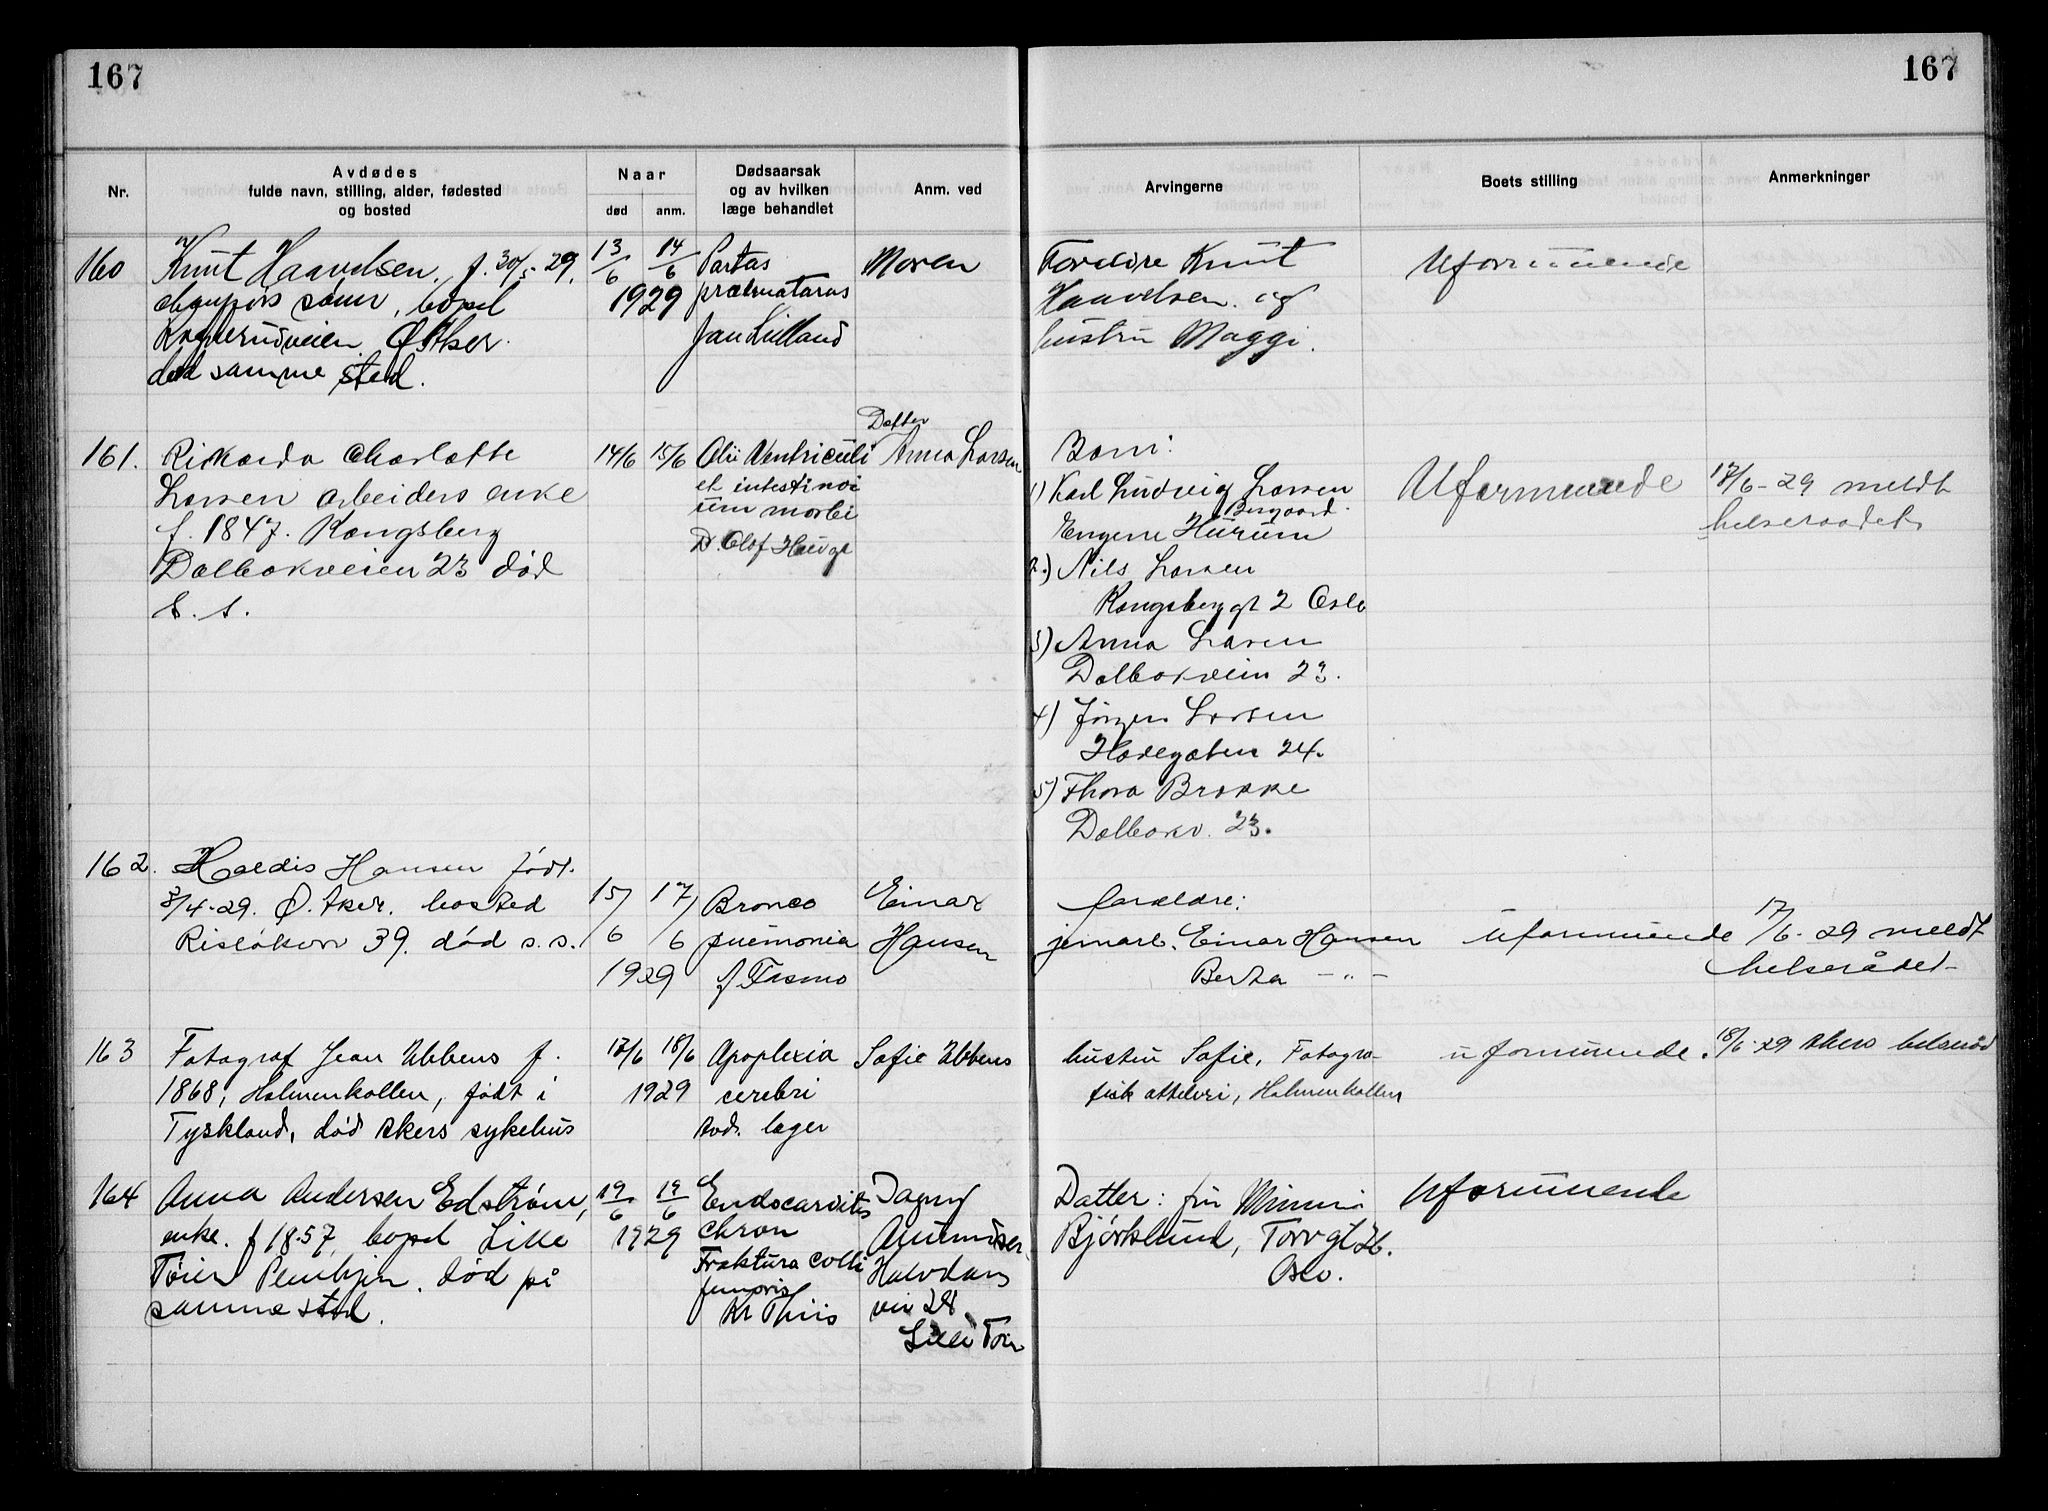 167
167
Nr.
Avdødes
fulde navn, stilling, alder, fødested
og bosted
Naar
død
anm.
Dødsaarsak
og av hvilken
læge behandlet
Anm. ved
Arvingerne
Boets stilling
Anmerkninger
160
Knut Haavelsen, f. 30/5-29,
søn, bopel
Østker
død samme sted.
13/6 14/6
1929
Partus
præmaturus
Jan
Moren
Foreldre Knut
Haavelsen og
hustru Maggi.
Uformuende
161.
Rikarda Charlotte
Larsen arbeiders enke
f. 1847. Kongsberg
Dalbokveien 23 død
s. s.
14/6 15/6
Ventriculi
et intestinoi
um morbi
D. Olof Hauge
Datter
Anna Larsen
Barn:
1) Karl Ludvig Larsen
Eugene Hurum
2.) Nils Larsen
Kongsberggt 2 Oslo
3) Anna Larsen
Dalbokveien 23.
4) Jørgen Larsen
24.
5) Thora Brokke
Dalbokv. 23.
Uformuende
17/6-29 meldt
helseraadet
162.
Haldis Hansen født.
3/4-29. Ø. Aker. bosted
Risløkvn 39. død s.s.
15/6 17/6
1929
Bronco
puemonia
Einar
Hansen
foreldre:
jernarb. Einar Hansen
Berta -"-
uformuende
17/6-29 meldt
helserådet
163
Fotograf Jean Ubbens f.
1868, Holmenkollen, født i
Tyskland, død Akers sykehus
17/6 18/6
1929
Apoplexia
cerebri
avd. læger
Sofie Ubbens
hustru Sofie, Fotogra-
fisk atteleri, Holmenkollen
uformuende.
18/6-29 Akers helseråd
164
Anna Andersen Edstrøm,
enke. f 1857, bopel Lille
Tøien død på
samme sted.
19/6 19/6
1929
Endocarditis
Chron
Fraktura colli
femoris
Kr Thiis
Dagny
Amundsen,
Halvdans
vei 28
Lille Tøien
Datter: fru Minni
Bjørklund, Torvgt 26.
Oslo.
Uformuende